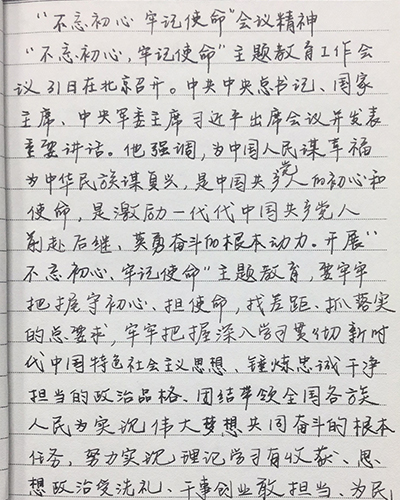 “不忘初心 牢记使命”会议精神
“不忘初心,牢记使命”主题教育工作会
议31日在北京召开。中共中央总书记、国家
主席、中央军委主席习近平出席会议并发表
重要讲话。他强调,为中国人民谋幸福
为中华民族谋复兴,是中国共产党人的初心和
使命,是激励一代代中国共产党人
前赴后继、英勇奋斗的根本动力。开展“
不忘初心、牢记使命”主题教育,要牢牢
把握守初心、担使命,找差距、抓落实
的总要求,牢牢把握深入学习贯彻新时
代中国特色社会主义思想、锤炼忠诚干净
担当的政治品格、团结带领全国各族
人民为实现伟大梦想共同奋斗的根本
任务,努力实现理论学习有收获、思
想政治受洗礼、干事创业敢担当、为民